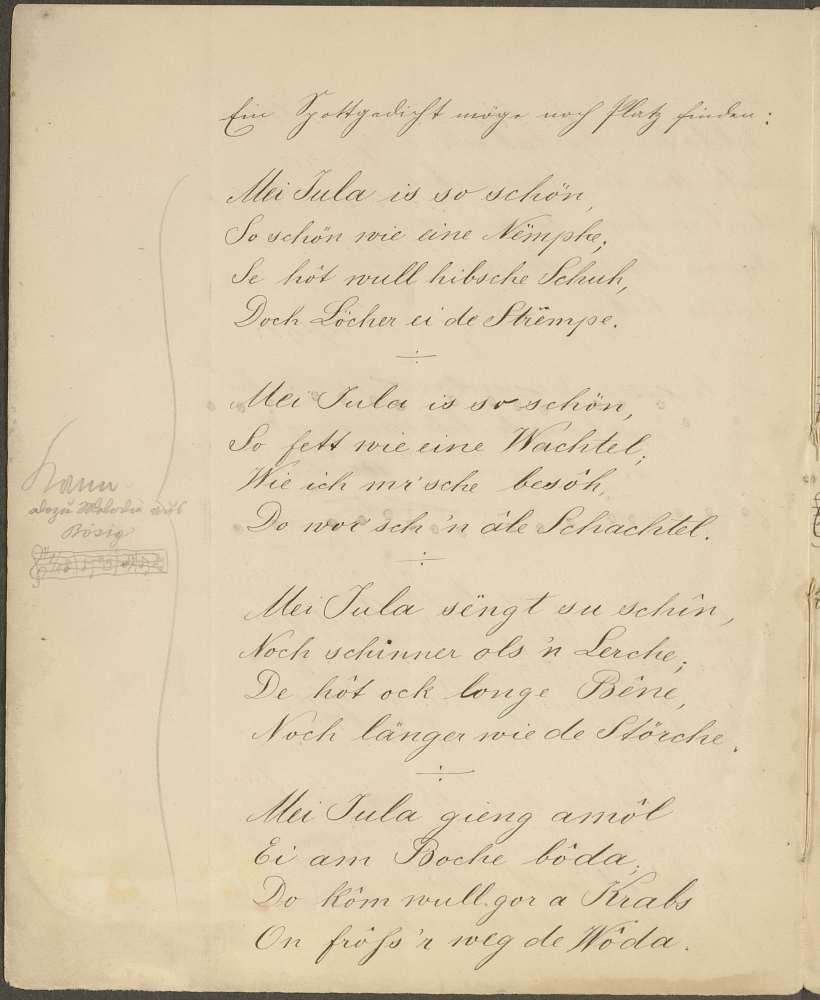 Ein Spottgedicht möge noch Platz finden:
Mei Jula is so schön,
So schön wie eine Nëmphe;
Se hôt wull hibsche Schuh,
Doch Löcher ei de Strëmpe.
Mei Jula is so schön,
So fett wie eine Wachtel;
Wie ich mr'sche besôh,
Do wor'sch 'n âle Schachtel.
Mei Jula sëngt su schîn,
Noch schinner ols 'n Lerche;
De hôt ock longe Bêne,
Noch länger wie de Störche.
Mei Jula gieng amôl
Ei am Boche bôda;
Do kôm wull gor a Krabs
On frôss'r weg de Wôda.
dazu Melodie aus
Bösig